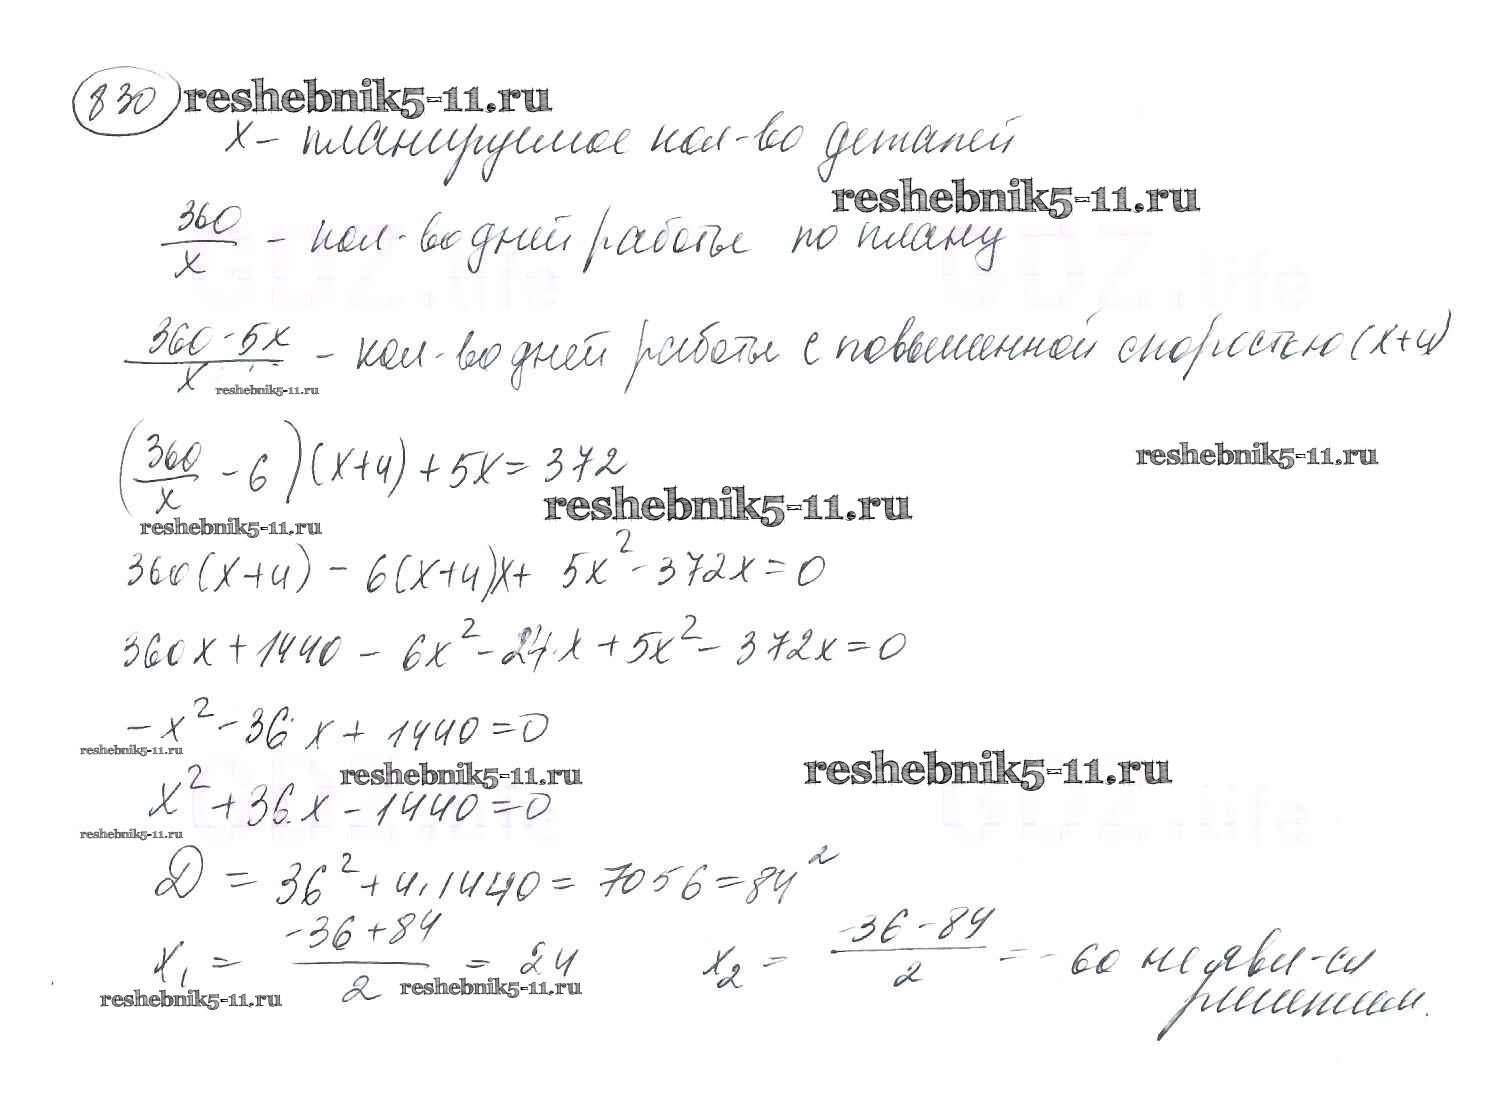 830 reshebnik5-11.ru
x - планируемое кол-во деталей
reshebnik5-11.ru
360/x - кол-во дней работы по плану
(360-5x)/x - кол-во дней работы с повышенной скоростью (x+4)
reshebnik5-11.ru
(360/x - 6)(x+4) + 5x = 372
reshebnik5-11.ru
reshebnik5-11.ru
reshebnik5-11.ru
360(x+4) - 6(x+4)x + 5x² - 372x = 0
360x + 1440 - 6x² - 24x + 5x² - 372x = 0
-x² - 36x + 1440 = 0
reshebnik5-11.ru
reshebnik5-11.ru
reshebnik5-11.ru
x² + 36x - 1440 = 0
reshebnik5-11.ru
D = 36² + 4·1440 = 7056 = 84²
x₁ = (-36+84)/2 = 24 x₂ = (-36-84)/2 = -60 не явл-ся
решением.
reshebnik5-11.ru
reshebnik5-11.ru